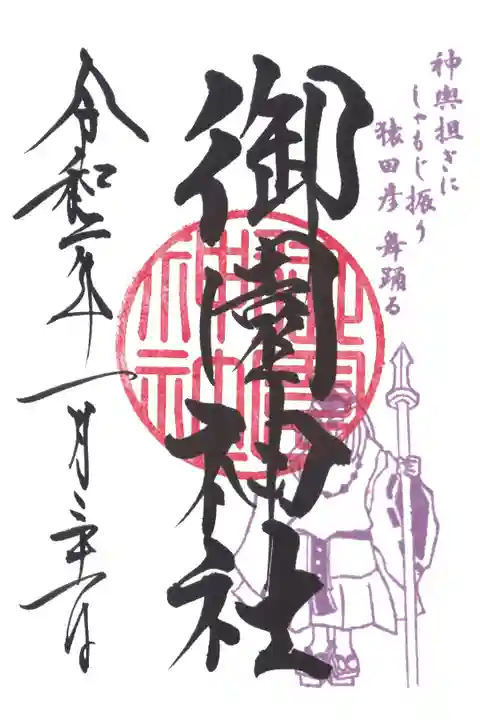 神輿担ぎに
しゃもじ振り
猿田彦 舞踊る
御園神社
令和二年一月二十一日